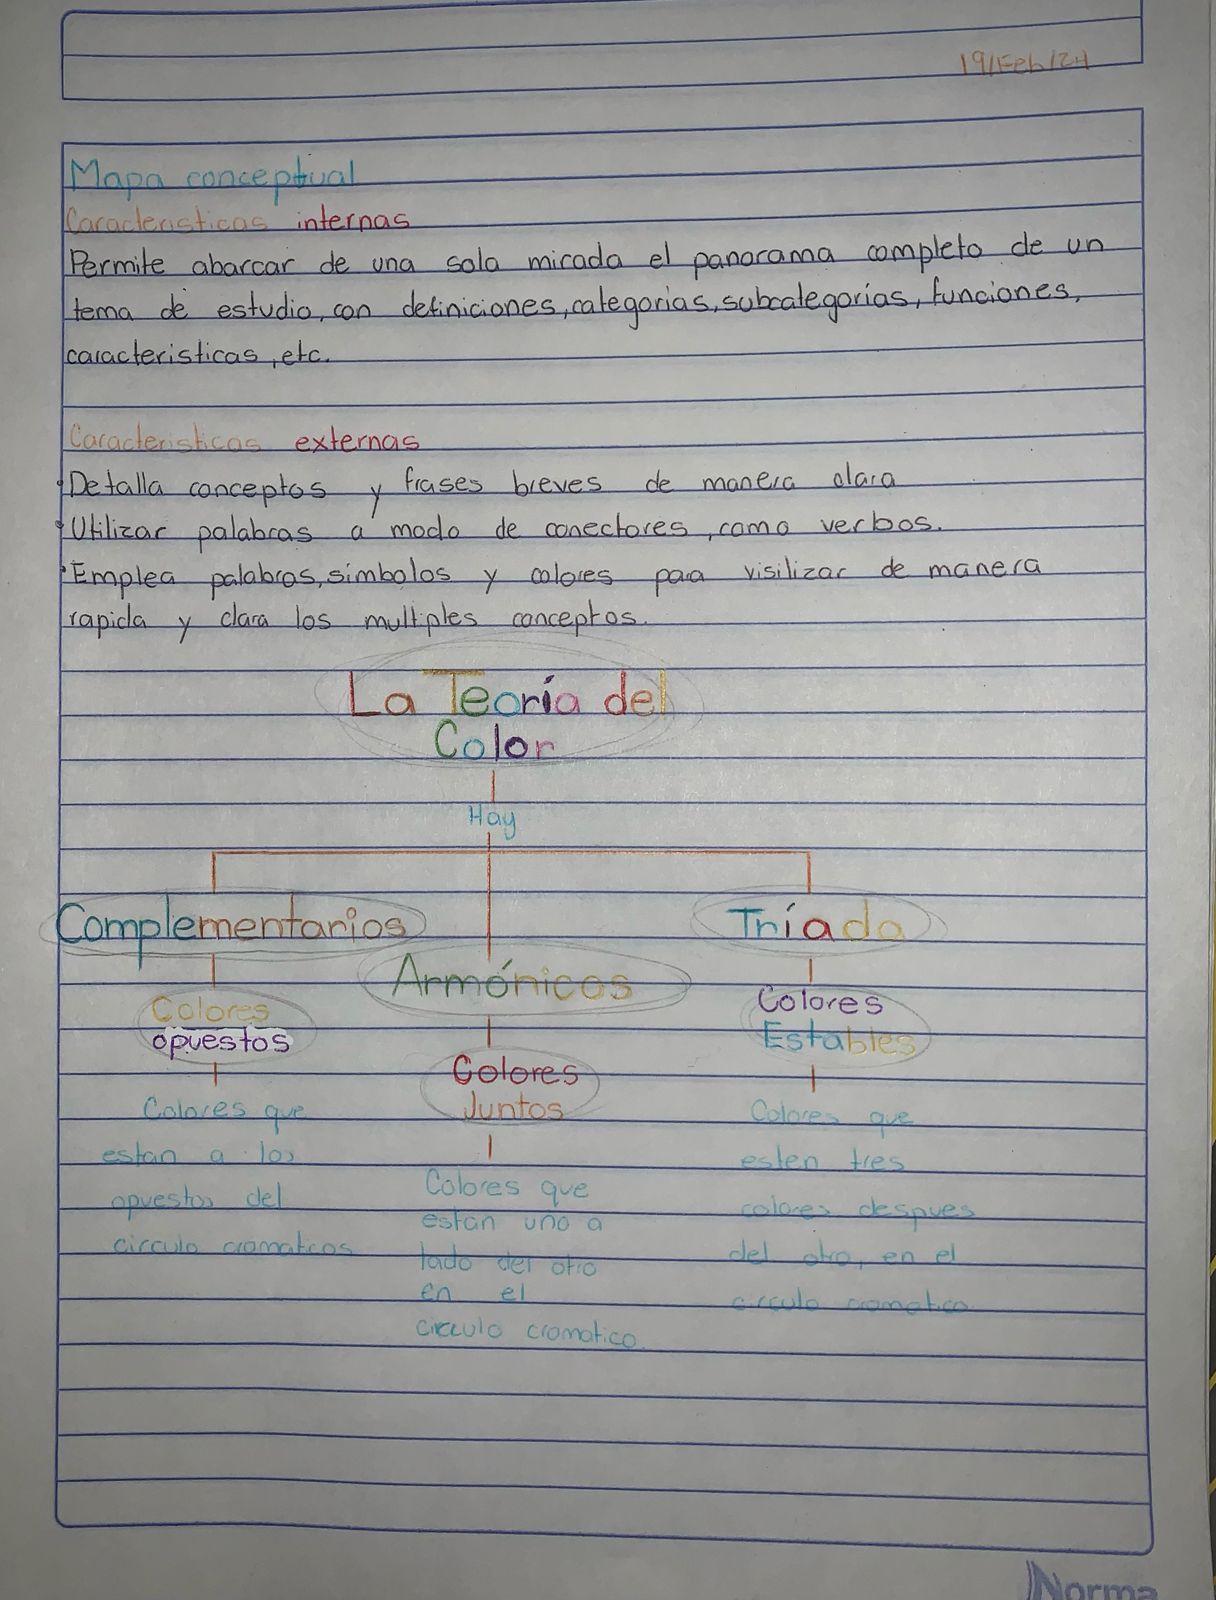 19/Feb/24
Mapa conceptual
Caracteristicas internas
Permite abarcar de una sola mirada el panorama completo de un
tema de estudio, con definiciones, categorias, subcategorías, funciones,
caracteristicas, etc.
Caracteristicas externas
Detalla conceptos y frases breves de manera clara
Utilizar palabras a modo de conectores, como verbos.
Emplea palabras, simbolos y colores para visilizar de manera
rapida y clara los multiples conceptos.
La Teoría del
Color
Hay
Complementarios
Colores
opuestos
Colores que
estan a los
opuestos del
circulo cromaticos
Armónicos
Colores
Juntos
Colores que
estan uno a
lado del otro
en el
circulo cromatico.
Tríada
Colores
Estables
Colores que
esten tres
colores despues
del otro, en el
circulo cromatico
Norma